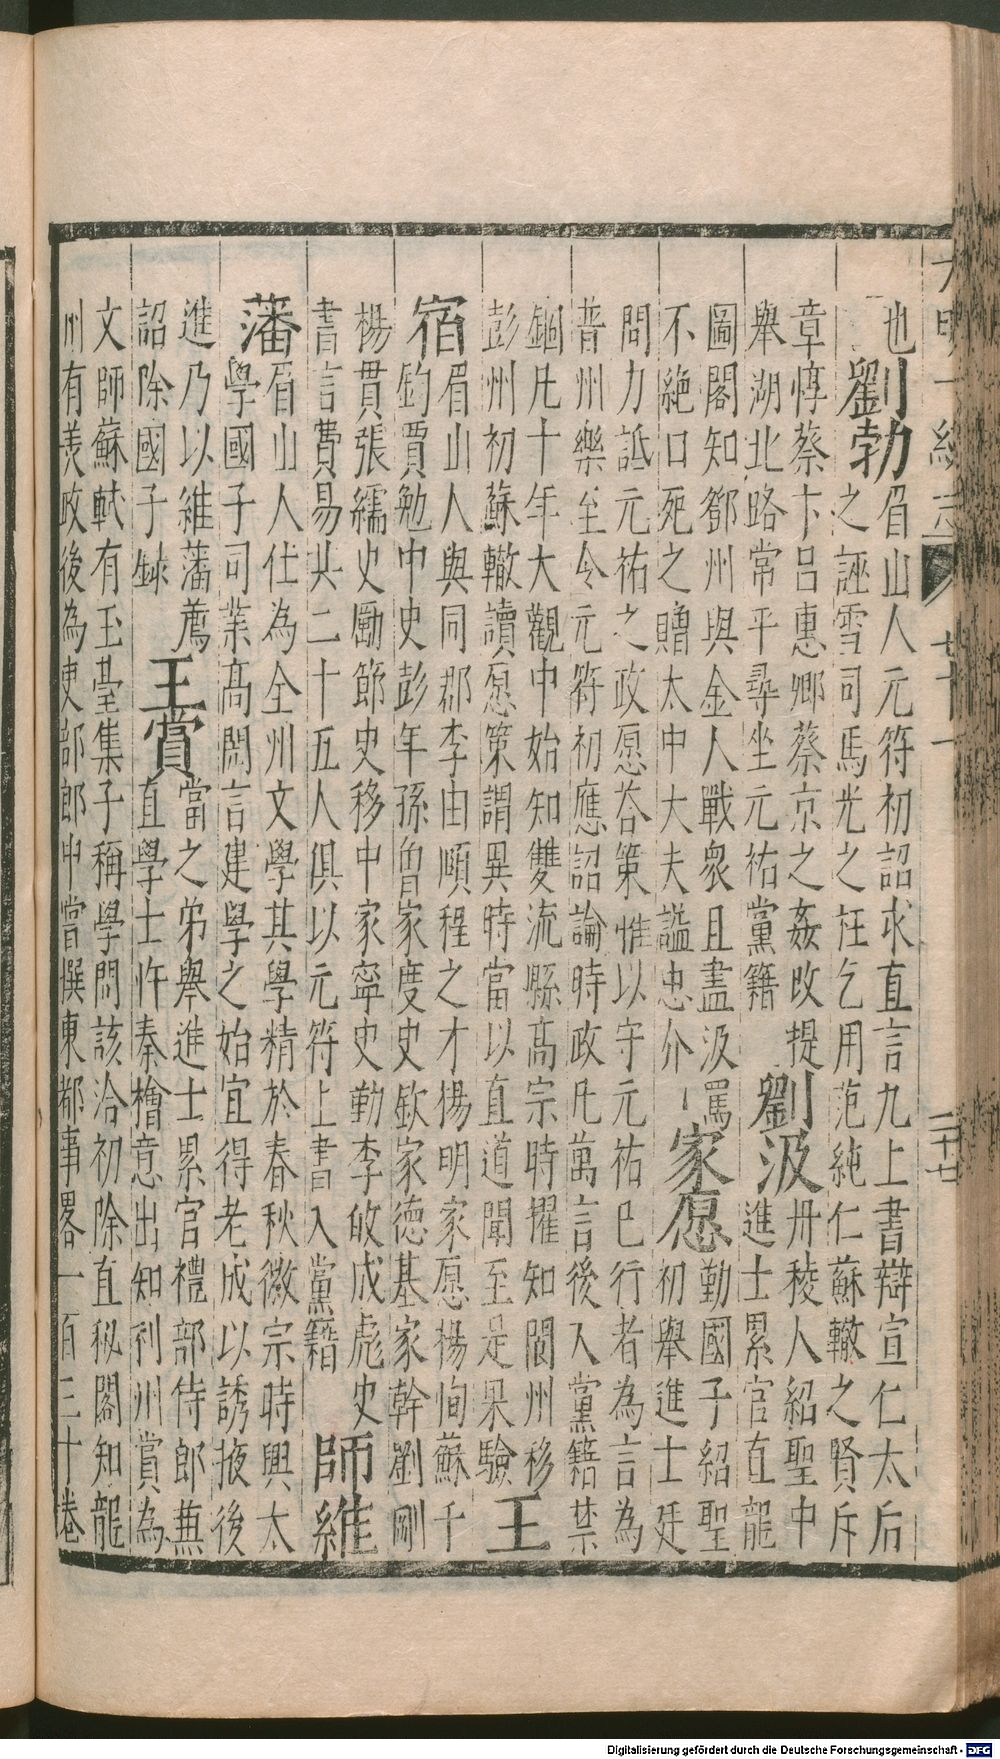 大明一統志 卷七十一 二十七
也 劉勃 眉山人元符初詔求直言九上書辯宣仁太后
之誣雪司馬光之枉乞用范純仁蘇轍之賢斥
章惇蔡卞呂惠卿蔡京之姦改提 劉汲 丹稜人紹聖中
舉湖北路常平尋坐元祐黨籍 進士累官直龍
圖閣知鄧州與金人戰衆且盡汲罵 家愿 勤國子紹聖
不絶口死之贈太中大夫謚忠介 初舉進士廷
問力詆元祐之政愿荅策惟以守元祐已行者為言為
普州樂至令元符初應詔論時政凡萬言後入黨籍禁
錮凡十年大觀中始知雙流縣高宗時擢知閬州移
彭州初蘇轍讀愿策謂異時當以直道聞至是果驗 王
宿 眉山人與同郡李由頤程之才楊明家愿楊恂蘇千
鈞賈勉中史彭年孫魯家度史欽家德基家幹劉剛
楊貫張繻史勵節史移中家寜史勤李攸成彪史
書言費易共二十五人俱以元符上書入黨籍 師維
藩 眉山人仕為全州文學其學精於春秋徽宗時興太
學國子司業高閌言建學之始宜得老成以誘掖後
進乃以維藩薦 王賞 當之弟舉進士累官禮部侍郎兼
詔除國子録 直學士忤秦檜意出知利州賞為
文師蘇軾有玉臺集子稱學問該洽初除直秘閣知龍
州有羙政後為吏部郎中嘗撰東都事畧一百三十卷
Digitalisierung gefördert durch die Deutsche Forschungsgemeinschaft - DFG